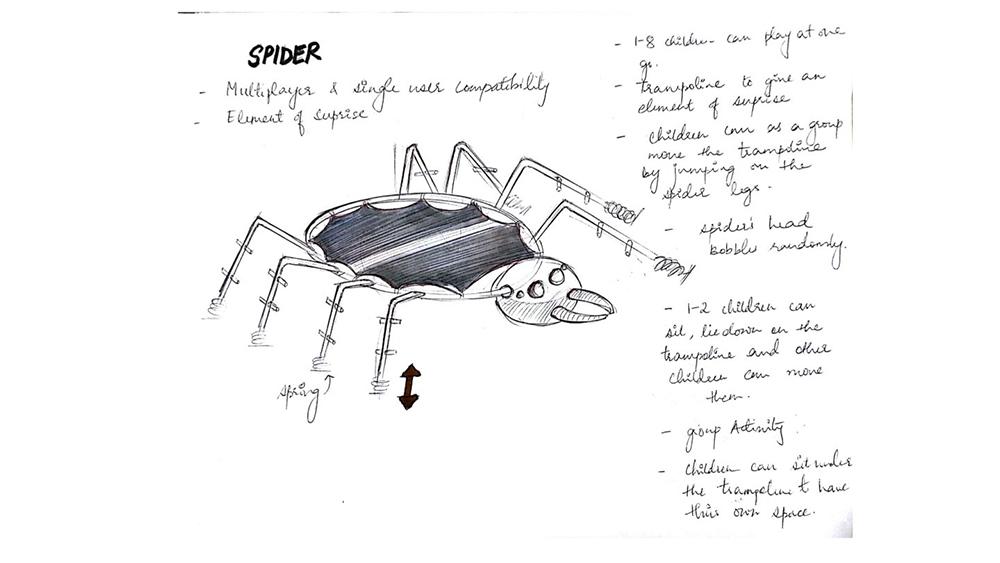 SPIDER
- Multiplayer & single user compatibility
- Element of suprise
spring
- 1-8 children can play at one
go.
- trampoline to give an
element of suprise
- children can as a group
move the trampoline
by jumping on the
spider legs.
- spider's head
bobbles randomly.
- 1-2 children can
sit, lie down on the
trampoline and other
children can move
them.
- group Activity
- children can sit under
the trampoline to have
their own space.